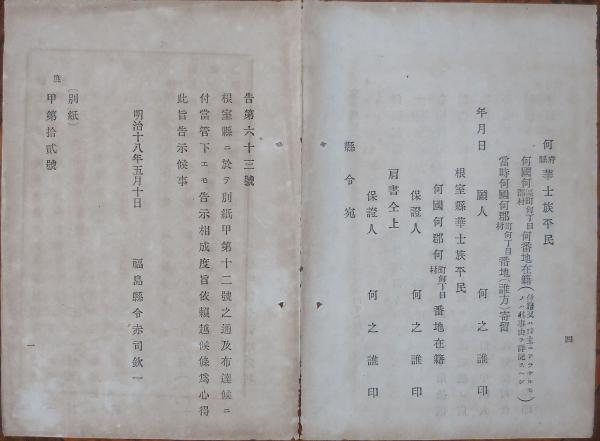 何府縣華士族平民
何國何區郡町村何丁目何番地在籍
當時何國何郡町村何丁目番地(誰方)寄留
年月日
願人 何之誰印
根室縣華士族平民
何國何郡何町村何丁目番地在籍
保證人 何之誰印
肩書仝上
保證人 何之誰印
縣令宛
四
告第六十三號
根室縣ニ於テ別紙甲第十二號之通及布達候ニ
付當管下エモ告示相成度旨依賴越候條爲心得
此旨告示候事
明治十八年五月十日
福島縣令赤司欽一
(別紙)
甲第拾貳號
一